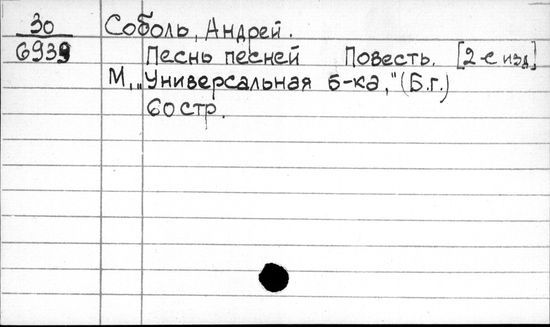 30 Соболь, Андрей.
6939 Песнь песней Повесть. [2-е изд]
М, "Универсальная б-ка," (Б.г.)
60 стр.